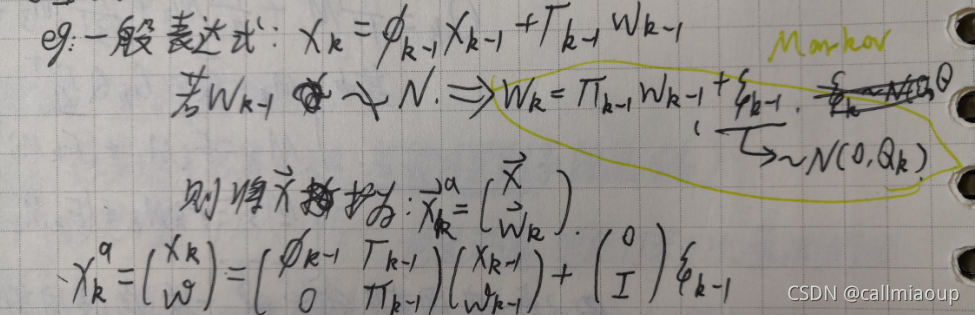 eg:一般表达式: X_k = ϕ_{k-1} X_{k-1} + Γ_{k-1} W_{k-1}
Markov
若 W_{k-1} ≁ N. ⇒ W_k = Π_{k-1} W_{k-1} + ξ_{k-1}.
~N(0, Q_k)
则将 X⃗ 扩为: X⃗_k^a = (X⃗ ; W⃗_k).
X_k^a = (X_k ; W) = (ϕ_{k-1} Γ_{k-1} ; 0 Π_{k-1}) (X_{k-1} ; W_{k-1}) + (0 ; I) ξ_{k-1}
CSDN @callmiaoup